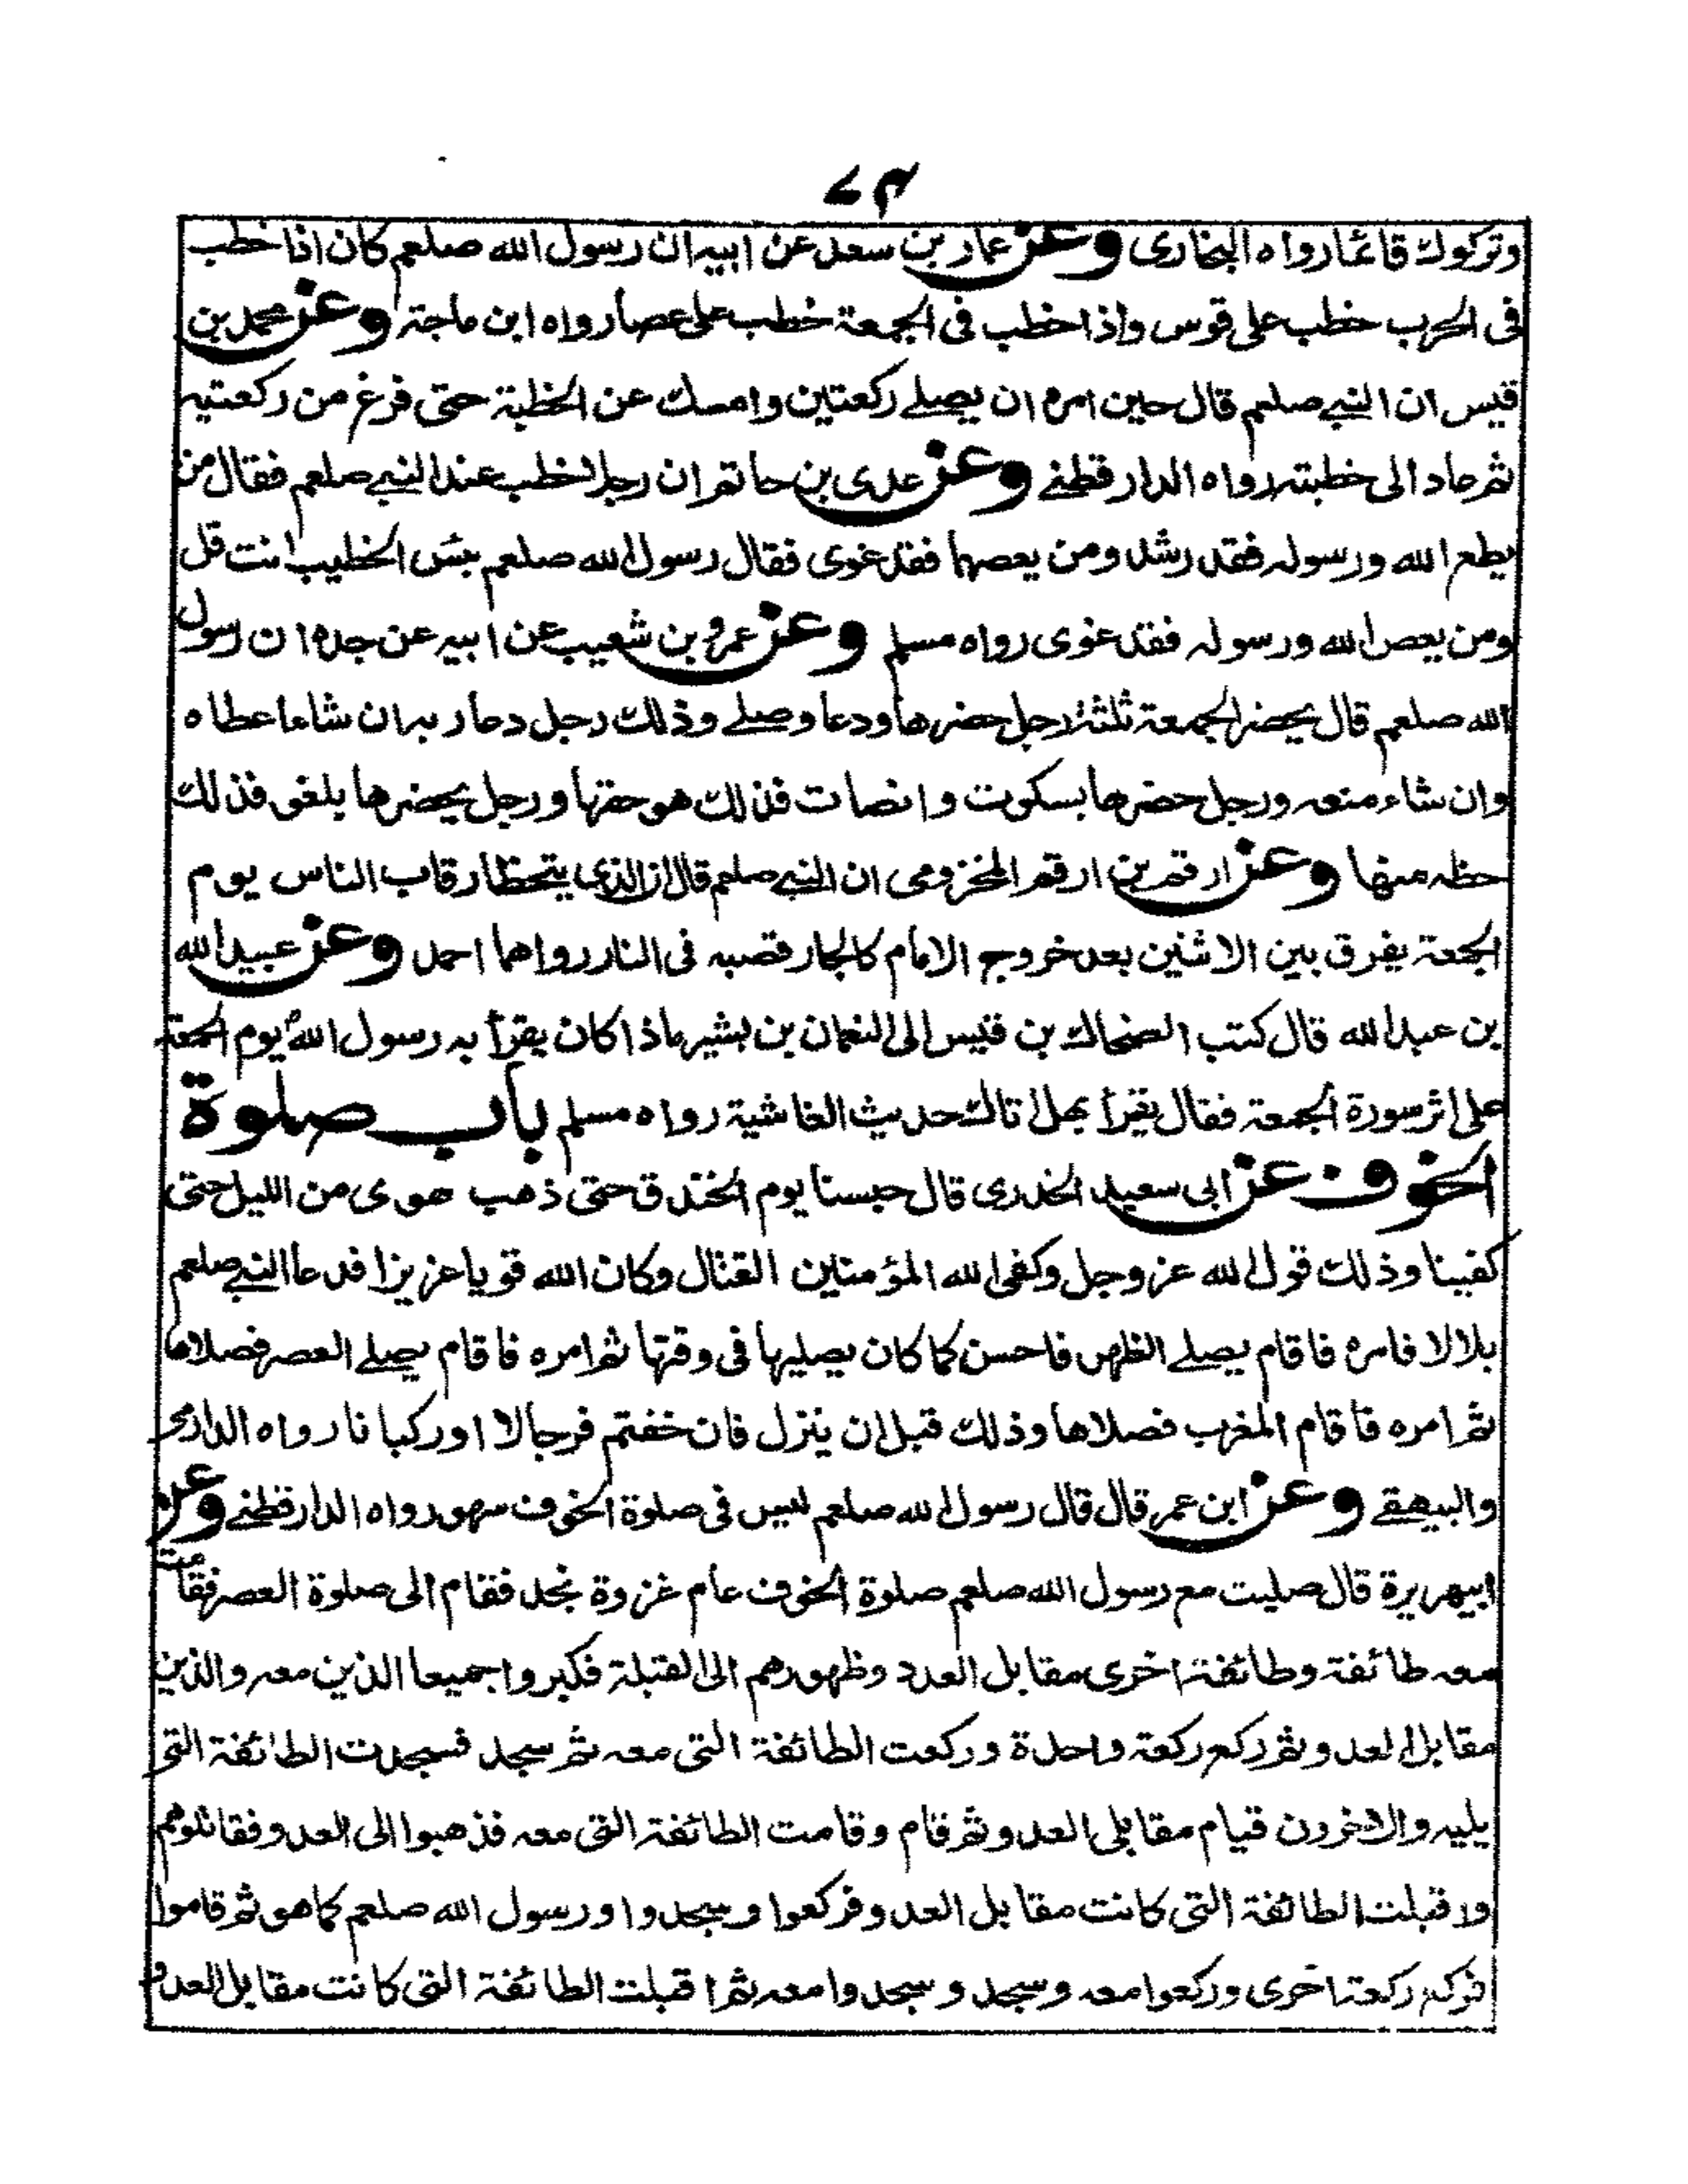 ٧٣
وتركوك قائما رواه البخاري وعن عمار بن سعد عن ابيه ان رسول الله صلعم كان اذا خطب
في الحرب خطب على قوس واذا خطب في الجمعة خطب على عصا رواه ابن ماجة وعن محمد بن
قيس ان النبي صلعم قال حين امره ان يصلے ركعتين وامسك عن الخطبة حتى فرغ من ركعتيه
ثم عاد الى خطبته رواه الدارقطنے وعن عدى بن حاتم ان رجلا خطب عند النبي صلعم فقال من
يطع الله ورسوله فقد رشد ومن يعصهما فقد غوى فقال رسول الله صلعم بئس الخطيب انت قل
ومن يعص الله ورسوله فقد غوى رواه مسلم وعن عمرو بن شعيب عن ابيه عن جده ان رسول
الله صلعم قال يحضر الجمعة ثلثة رجل حضرها ودعا وصلے وذلك رجل دعا ربه ان شاء اعطاه
وان شاء منعه ورجل حضرها بسكوت وانصات فذلك هو حقها ورجل يحضرها يلغو فذلك
حظه منها وعن ارقم بن ارقم المخزومى ان النبي صلعم قال ان الذى يتخطا رقاب الناس يوم
الجمعة يفرق بين الاثنين بعد خروج الامام كالجار قصبه فى النار رواهما احمد وعن عبيد الله
بن عبد الله قال كتب الضحاك بن قيس الى النعمان بن بشير ماذا كان يقرأ به رسول الله يوم الجمعة
على اثر سورة الجمعة فقال يقرأ بهل اتاك حديث الغاشية رواه مسلم باب صلوة
الخوف عن ابى سعيد الخدرى قال حبسنا يوم الخندق حتى ذهب هوى من الليل حتى
كفينا وذلك قول الله عز وجل وكفى الله المؤمنين القتال وكان الله قويا عزيزا فدعا النبي صلعم
بلالا فامره فاقام يصلے الظهر فاحسن كما كان يصليها فى وقتها ثم امره فاقام يصلے العصر فصلاها
ثم امره فاقام المغرب فصلاها وذلك قبل ان ينزل فان خفتم فرجالا او ركبانا رواه الدارمى
والبيهقے وعن ابن عمر قال قال رسول الله صلعم ليس فى صلوة الخوف سهو رواه الدارقطنے وعن
ابيهريرة قال صليت مع رسول الله صلعم صلوة الخوف عام غزوة نجد فقام الى صلوة العصر فقامت
معه طائفة وطائفة اخرى مقابل العدد وظهورهم الى القبلة فكبروا جميعا الذين معه والذين
مقابل العدو ثم ركع ركعة واحدة وركعت الطائفة التى معه ثم سجد فسجدت الطائفة التى
يليه والاخرون قيام مقابلى العدو ثم قام وقامت الطائفة التى معه فذهبوا الى العدو فقاتلوهم
واقبلت الطائفة التى كانت مقابل العدو فركعوا وسجدوا ورسول الله صلعم كما هو ثم قاموا
فركع ركعة اخرى وركعوا معه وسجد وسجدوا معه ثم اقبلت الطائفة التى كانت مقابل العدو